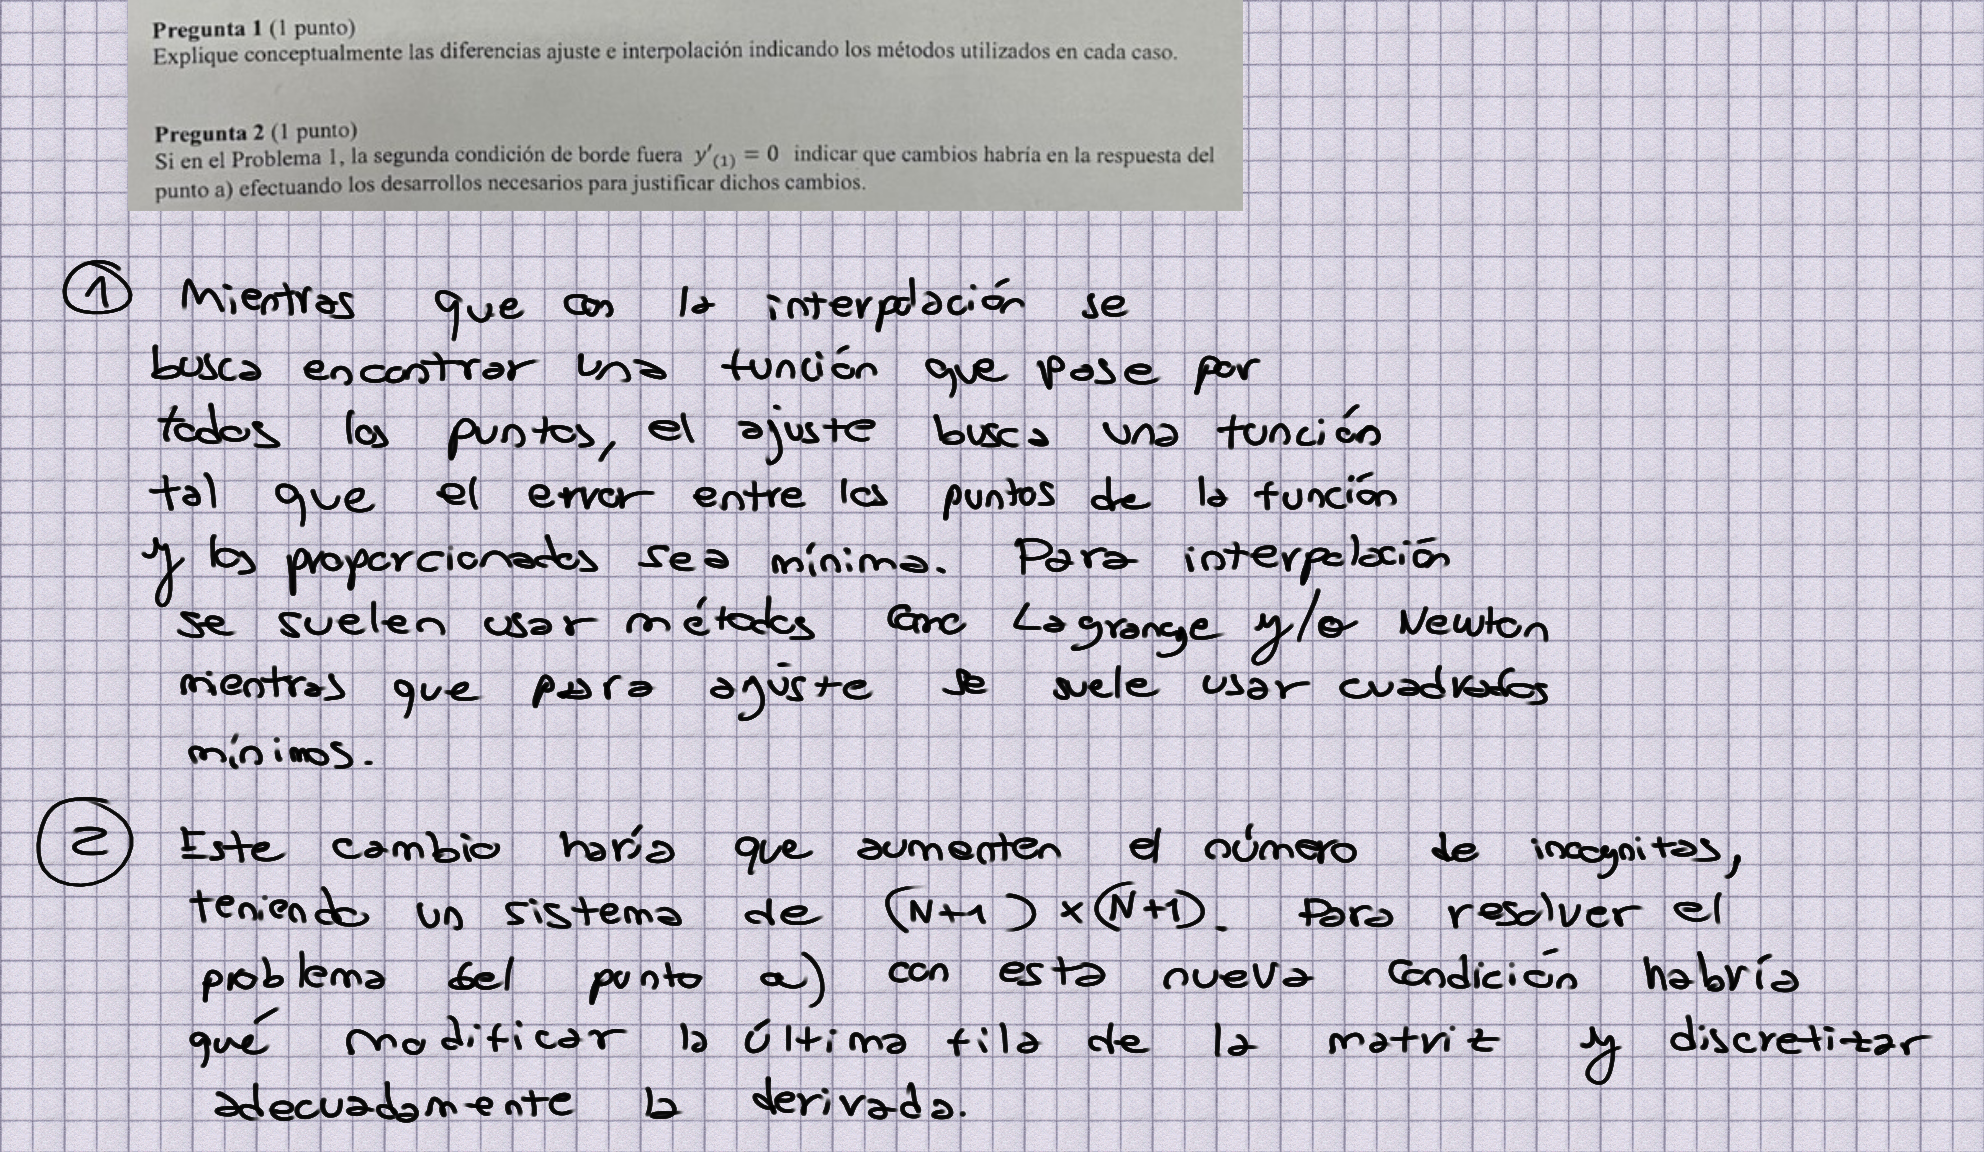 Pregunta 1 (1 punto)
Explique conceptualmente las diferencias ajuste e interpolación indicando los métodos utilizados en cada caso.
Pregunta 2 (1 punto)
Si en el Problema 1, la segunda condición de borde fuera y'(1) = 0 indicar que cambios habría en la respuesta del
punto a) efectuando los desarrollos necesarios para justificar dichos cambios.
① Mientras que con la interpolación se
busca encontrar una función que pase por
todos los puntos, el ajuste busca una función
tal que el error entre los puntos de la función
y los proporcionados sea mínimo. Para interpolación
se suelen usar métodos como Lagrange y/o Newton
mientras que para ajuste se suele usar cuadrados
mínimos.
② Este cambio haría que aumenten el número de incognitas,
teniendo un sistema de (N+1)×(N+1). Para resolver el
problema del punto a) con esta nueva condición habría
qué modificar la última fila de la matriz y discretizar
adecuadamente la derivada.